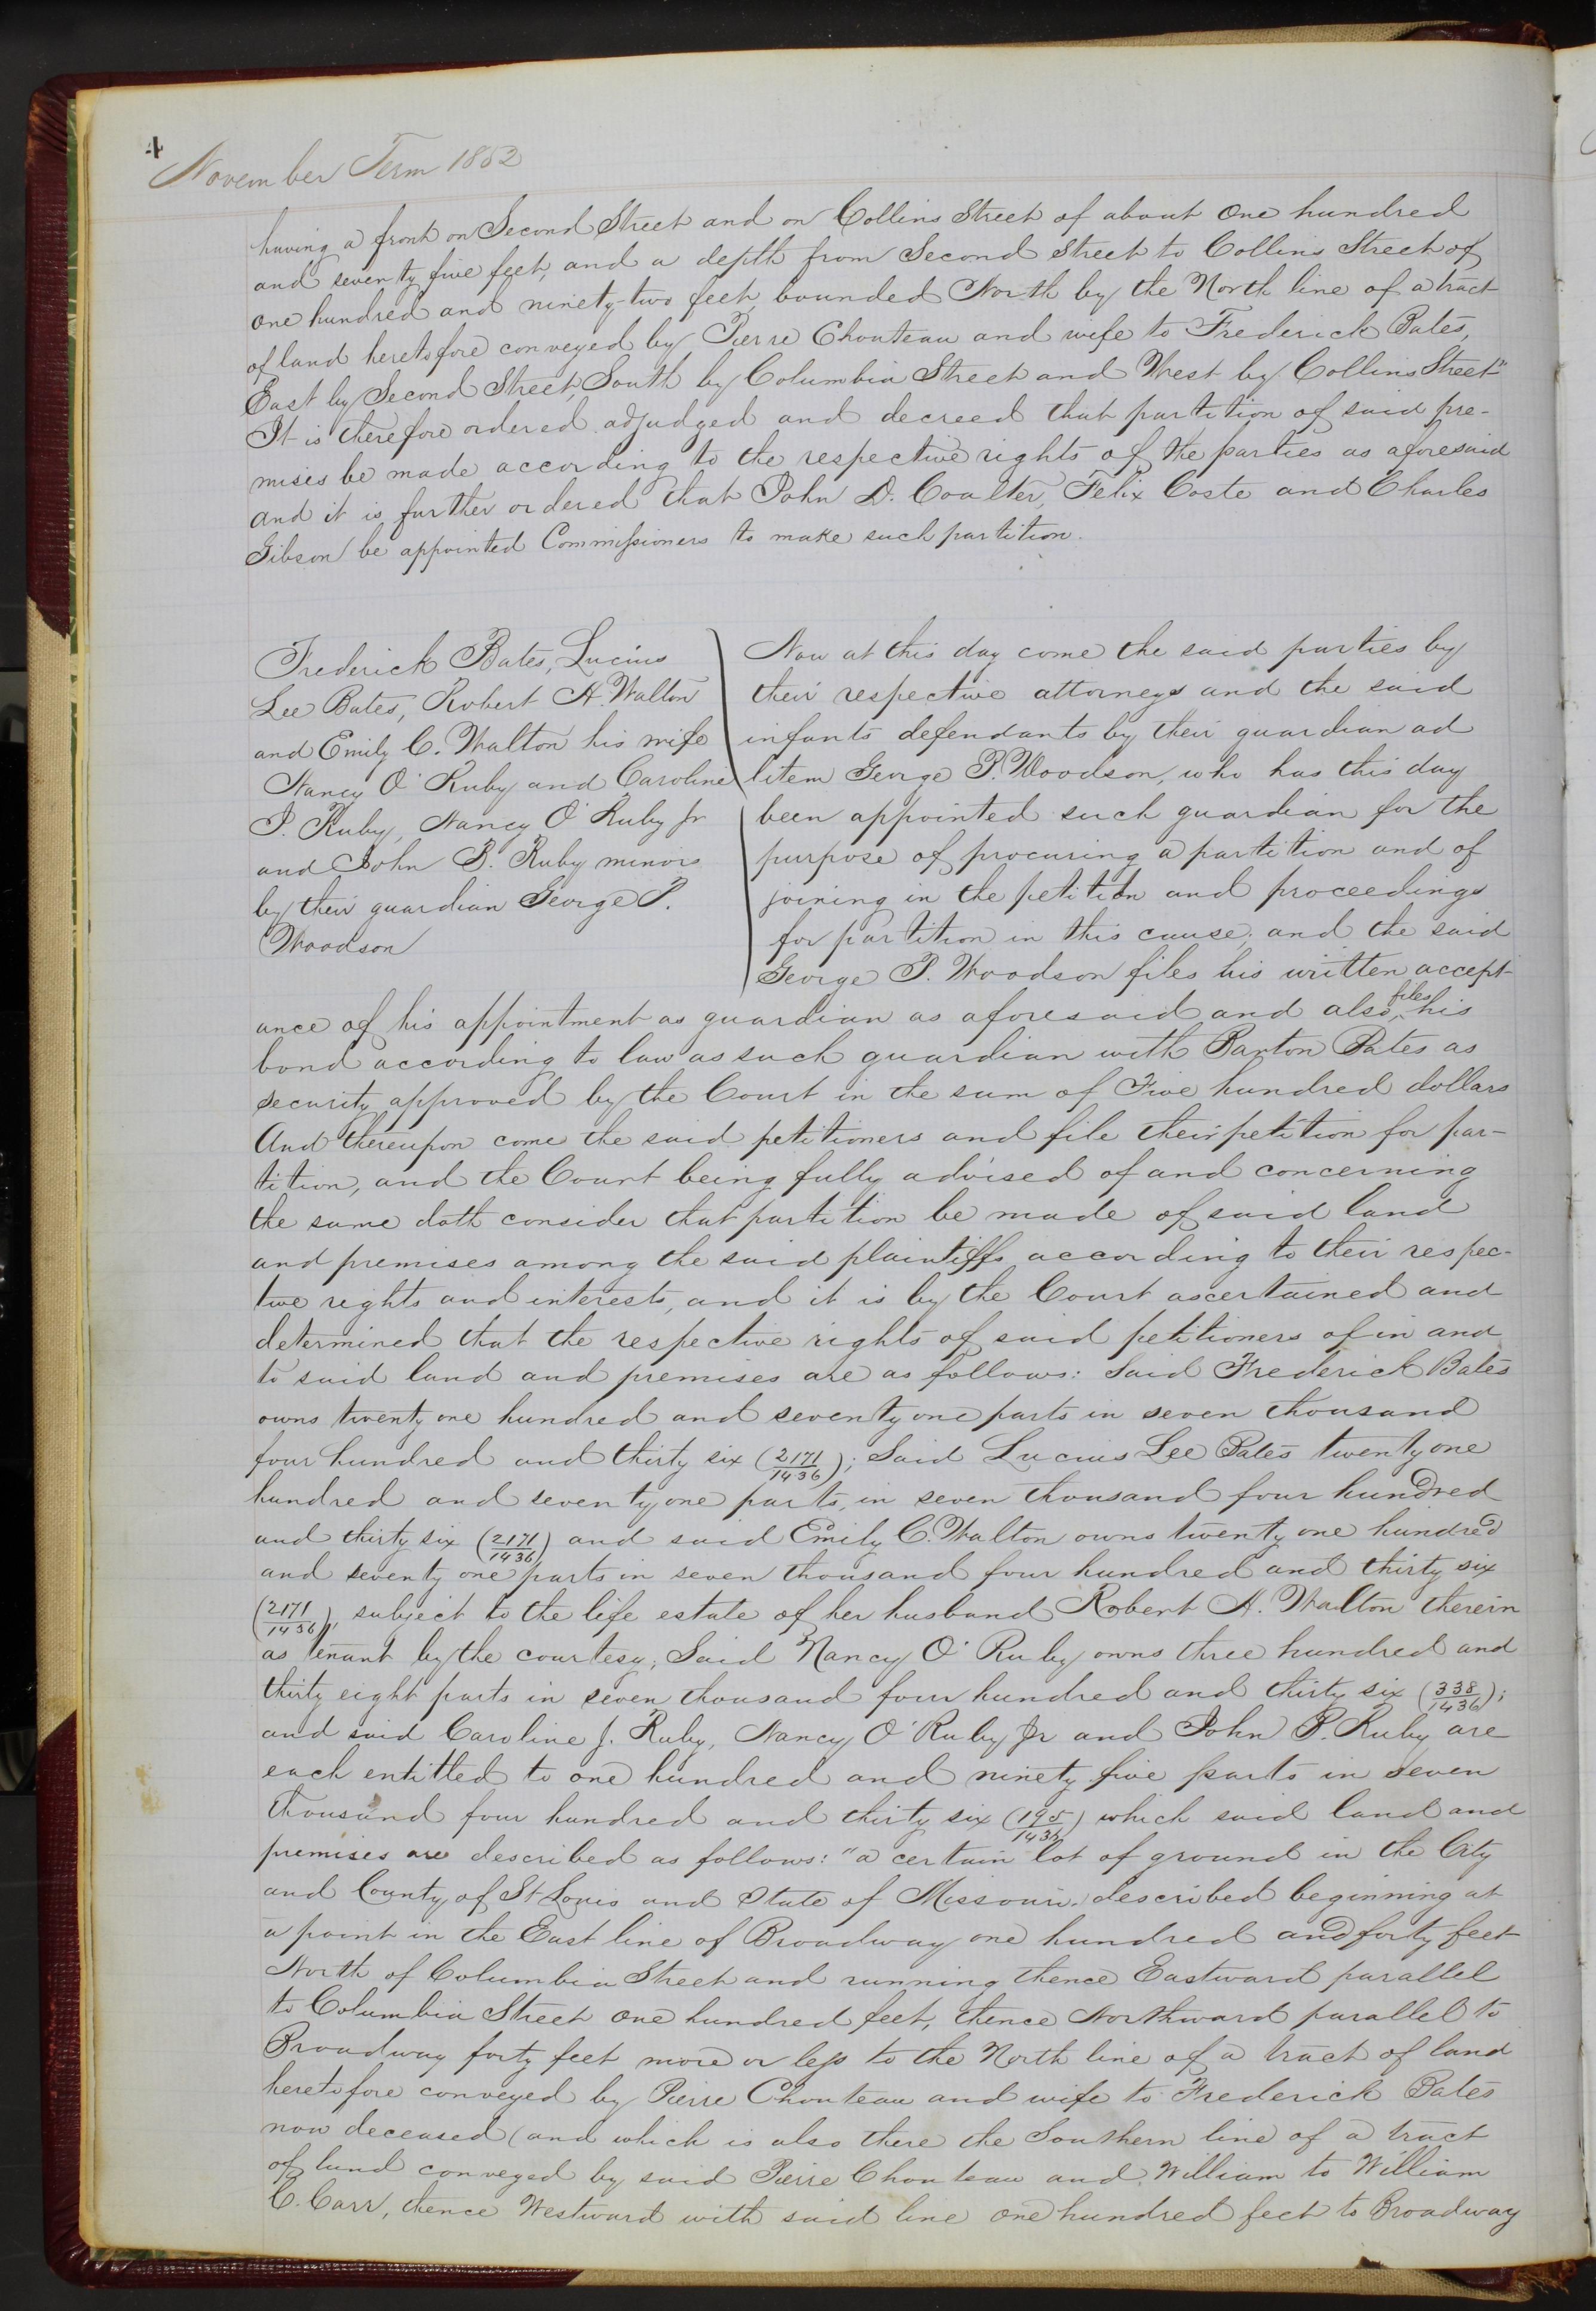 4
November Term 1852
having a front on Second Street and on Collins Street of about One hundred
and seventy five feet, and a depth from Second Street to Collins Street of
one hundred and ninety-two feet, bounded North by the North line of a tract
of land heretofore conveyed by Pierre Chouteau and wife to Frederick Bates,
East by Second Street, South by Columbia Street and West by Collins Street"
It is therefore ordered adjudged and decreed that partition of said pre-
mises be made according to the respective rights of the parties as aforesaid
and it is further ordered that John D. Coalter, Felix Coste and Charles
Gibson be appointed Commissioners to make such partition.
Frederick Bates, Lucius
Lee Bates, Robert A. Walton
and Emily C. Walton his wife
Nancy O' Ruby and Caroline
J. Ruby, Nancy O' Ruby Jr
and John B. Ruby minors
by their guardian George P.
Woodson
Now at this day come the said parties by
their respective attorneys and the said
infants defendants by their guardian ad
litem George P. Woodson, who has this day
been appointed such guardian for the
purpose of procuring a partition and of
joining in the petition and proceedings
for partition in this cause; and the said
George P. Woodson files his written accept-
ance of his appointment as guardian as aforesaid and also files his
bond according to law as such guardian with Barton Bates as
security approved by the Court in the sum of Five hundred dollars
And thereupon come the said petitioners and file their petition for par-
tition, and the Court being fully advised of and concerning
the same doth consider that partition be made of said land
and premises among the said plaintiffs according to their respec-
tive rights and interests, and it is by the Court ascertained and
determined that the respective rights of said petitioners of in and
to said land and premises are as follows: Said Frederick Bates
owns twenty one hundred and seventy one parts in seven thousand
four hundred and thirty six (2171/1436); Said Lucius Lee Bates twenty one
hundred and seventy one parts, in seven thousand four hundred
and thirty six (2171/1436) and said Emily C. Walton owns twenty one hundred
and seventy one parts in seven thousand four hundred and thirty six
(2171/1436), subject to the life estate of her husband Robert A. Walton therein
as tenant by the courtesy; Said Nancy O' Ruby owns three hundred and
thirty eight parts in seven thousand four hundred and thirty six (338/1436);
and said Caroline J. Ruby, Nancy O' Ruby Jr and John B. Ruby are
each entitled to one hundred and ninety five parts in seven
thousand four hundred and thirty six (195/1436) which said land and
premises are described as follows: "a certain lot of ground in the City
and County of St Louis and State of Missouri, described beginning at
a point in the East line of Broadway one hundred and forty feet
North of Columbia Street and running thence Eastward parallel
to Columbia Street one hundred feet, thence Northward parallel to
Broadway forty feet more or less to the North line of a tract of land
heretofore conveyed by Pierre Chouteau and wife to Frederick Bates
now deceased (and which is also there the Southern line of a tract
of land conveyed by said Pierre Chouteau and William to William
C. Carr, thence Westward with said line one hundred feet to Broadway